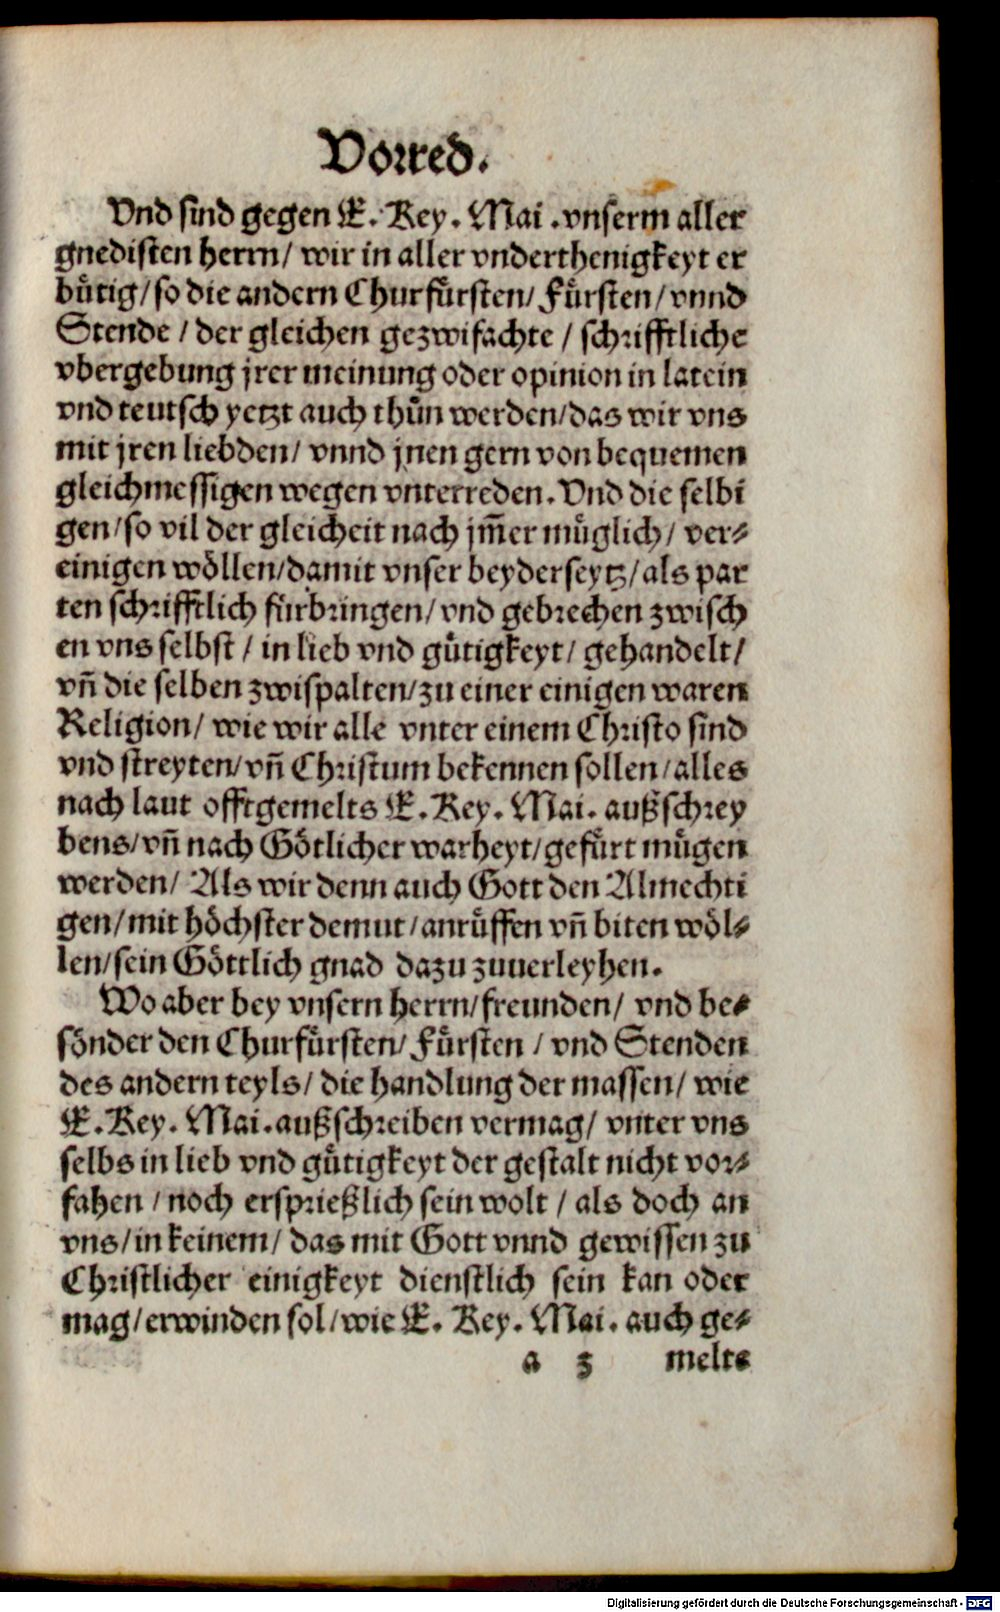 Vorred.
Vnd sind gegen E. Key. Mai. vnserm aller
gnedisten herrn/ wir in aller vnderthenigkeyt er
bůtig/ so die andern Churfůrsten/ Fůrsten/ vnnd
Stende / der gleichen gezwifachte / schrifftliche
vbergebung jrer meinung oder opinion in latein
vnd teutsch yetzt auch thůn werden/ das wir vns
mit jren liebden/ vnnd jnen gern von bequemen
gleichmessigen wegen vnterreden. Vnd die selbi
gen/ so vil der gleicheit nach jm̃er můglich/ ver⸗
einigen wöllen/ damit vnser beyderseytz/ als par
ten schrifftlich fürbringen/ vnd gebrechen zwisch
en vns selbst / in lieb vnd gůtigkeyt/ gehandelt/
vñ die selben zwispalten/ zu einer einigen waren
Religion/ wie wir alle vnter einem Christo sind
vnd streyten/ vñ Christum bekennen sollen/ alles
nach laut offtgemelts E. Key. Mai. außschrey
bens/ vñ nach Götlicher warheyt/ gefürt můgen
werden/ Als wir denn auch Gott den Almechti
gen/ mit höchster demut/ anrůffen vñ biten wöl⸗
len/ sein Göttlich gnad dazu zuuerleyhen.
Wo aber bey vnsern herrn/ freunden/ vnd be⸗
sönder den Churfürsten/ Fůrsten / vnd Stenden
des andern teyls/ die handlung der massen/ wie
E. Key. Mai. außschreiben vermag/ vnter vns
selbs in lieb vnd gůtigkeyt der gestalt nicht vor⸗
fahen / noch ersprießlich sein wolt / als doch an
vns/ in keinem/ das mit Gott vnnd gewissen zu
Christlicher einigkeyt dienstlich sein kan oder
mag/ erwinden sol/ wie E. Key. Mai. auch ge⸗
a 3 melts
Digitalisierung gefördert durch die Deutsche Forschungsgemeinschaft - DFG